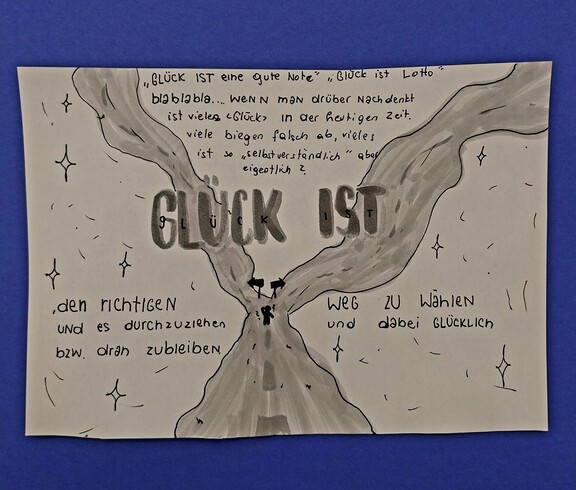 „GLÜCK IST eine gute Note" „Glück ist Lotto"
blablabla... WENN man drüber nachdenkt
ist vieles <Glück> in der heutigen Zeit.
viele biegen falsch ab, vieles
ist so „selbstverständlich" aber
eigentlich ?
GLÜCK IST
GLÜCK IST
den RICHTIGEN WEG ZU WÄHLEN
UND es DURCHZUZIEHEN und dabei GLÜCKLICH
bzw. dran zubleiben